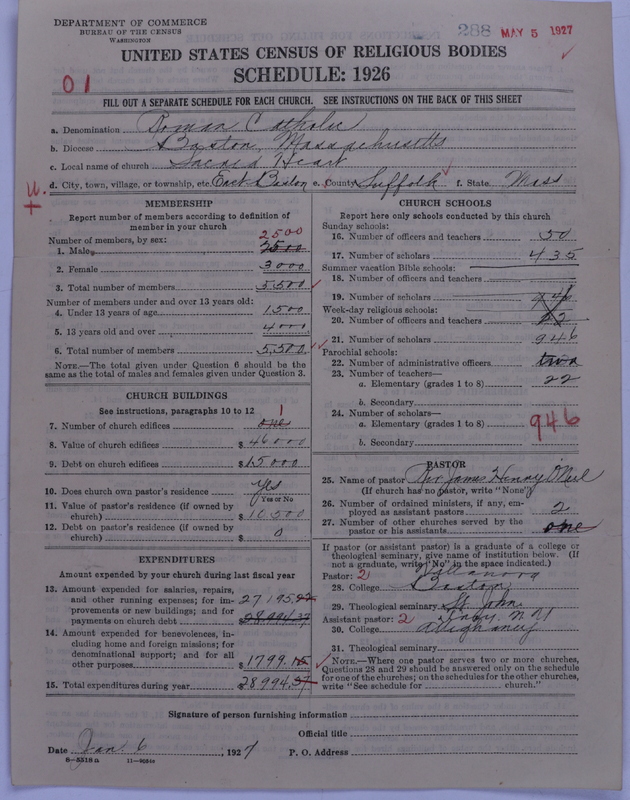 DEPARTMENT OF COMMERCE
BUREAU OF THE CENSUS
WASHINGTON
288 MAY 5 1927
UNITED STATES CENSUS OF RELIGIOUS BODIES
SCHEDULE: 1926
01
FILL OUT A SEPARATE SCHEDULE FOR EACH CHURCH. SEE INSTRUCTIONS ON THE BACK OF THIS SHEET
a. Denomination Roman Catholic
b. Diocese Boston, Massachusetts
c. Local name of church Sacred Heart
d. City, town, village, or township, etc. East Boston e. County Suffolk f. State Mass
MEMBERSHIP
Report number of members according to definition of
member in your church
Number of members, by sex: 2500
1. Male 2500
2. Female 3000
3. Total number of members 5,500
Number of members under and over 13 years old:
4. Under 13 years of age 1500
5. 13 years old and over 4000
6. Total number of members 5,500
NOTE.—The total given under Question 6 should be the
same as the total of males and females given under Question 3.
CHURCH BUILDINGS
See instructions, paragraphs 10 to 12
7. Number of church edifices one 1
8. Value of church edifices $ 46000
9. Debt on church edifices $ 15000
10. Does church own pastor's residence Yes
Yes or No
11. Value of pastor's residence (if owned by
church) $ 10,500
12. Debt on pastor's residence (if owned by
church) $ 0
EXPENDITURES
Amount expended by your church during last fiscal year
13. Amount expended for salaries, repairs,
and other running expenses; for im-
provements or new buildings; and for
payments on church debt $ 27195.22
28994.37
14. Amount expended for benevolences, in-
cluding home and foreign missions; for
denominational support; and for all
other purposes $ 1799.15
15. Total expenditures during year $ 28994.37
CHURCH SCHOOLS
Report here only schools conducted by this church
Sunday schools:
16. Number of officers and teachers 50
17. Number of scholars 435
Summer vacation Bible schools:
18. Number of officers and teachers
19. Number of scholars 946
Week-day religious schools:
20. Number of officers and teachers 22
21. Number of scholars 946
Parochial schools:
22. Number of administrative officers two
23. Number of teachers—
a. Elementary (grades 1 to 8) 22
b. Secondary
24. Number of scholars—
a. Elementary (grades 1 to 8) 946
b. Secondary
PASTOR
25. Name of pastor Rev James Henry O'Neil
(If church has no pastor, write "None")
26. Number of ordained ministers, if any, em-
ployed as assistant pastors 2
27. Number of other churches served by the
pastor or his assistants one
If pastor (or assistant pastor) is a graduate of a college or
theological seminary, give name of institution below. (If
not a graduate, write "No" in the space indicated.)
Pastor: 2 Villanova
28. College Boston
29. Theological seminary St. John
Assistant pastor: 2 Troy N.Y.
30. College Alleghaney
31. Theological seminary
NOTE.—Where one pastor serves two or more churches,
Questions 28 and 29 should be answered only on the schedule
for one of the churches; on the schedules for the other churches,
write "See schedule for church."
Signature of person furnishing information
Official title
Date Jan. 6, 1927 P. O. Address